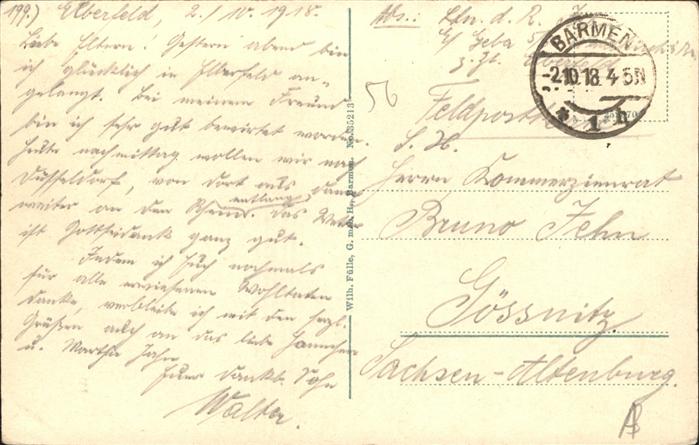 199.) Elberfeld, 2./10.1918.
Liebe Eltern! Gestern abend bin
ich glücklich in Elberfeld an-
gelangt. Bei meinem Freund
bin ich sehr gut bewirtet worden.
Heute nachmittag wollen wir nach
Düsseldorf, von dort aus dann
weiter an den Rhein entlang. Das Wetter
ist Gottseidank ganz gut.
Indem ich Euch nochmals
für alle erwiesenen Wohltaten
danke, verbleibe ich mit den herzl.
Grüßen auch an das liebe Hannchen
u. Martha
Euer dankb. Sohn
Walter.
Wilh. Fülle, G. m. b. H., Barmen. No. 35213
Abs.: Ltn. d. R.
BARMEN
-2.10.18. 4-5N
* 1 h
56
Feldpost
S. H.
Herrn Kommerzienrat
Bruno Fehn
Gössnitz
Sachsen-Altenburg.